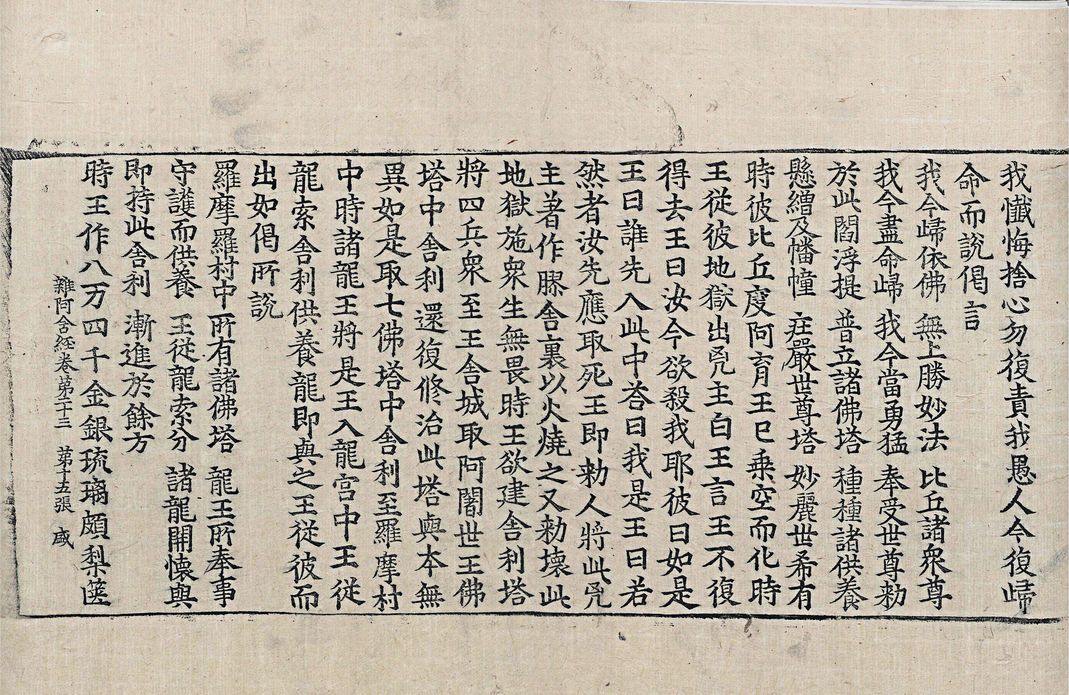 我懺悔捨心勿復責我愚人今復歸
命而說偈言
我今歸依佛 無上勝妙法 比丘諸衆尊
我今盡命歸 我今當勇猛 奉受世尊勑
於此閻浮提 普立諸佛塔 種種諸供養
懸繒及幡幢 莊嚴世尊塔 妙麗世希有
時彼比丘度阿育王已乗空而化時
王從彼地獄出兇主白王言王不復
得去王曰汝今欲殺我耶彼曰如是
王曰誰先入此中荅曰我是王曰若
然者汝先應取死王即勑人將此兇
主著作膠舍裏以火燒之又勑壞此
地獄施衆生無畏時王欲建舍利塔
將四兵衆至王舍城取阿闍世王佛
塔中舍利還復修治此塔與本無
異如是取七佛塔中舍利至羅摩村
中時諸龍王將是王入龍宮中王從
龍索舍利供養龍即與之王從彼而
出如偈所說
羅摩羅村中所有諸佛塔 龍王所奉事
守護而供養 王從龍索分 諸龍開懷與
即持此舍利 漸進於餘方
時王作八万四千金銀琉璃頗梨篋
雜阿含経卷第二十三 第十五張 咸